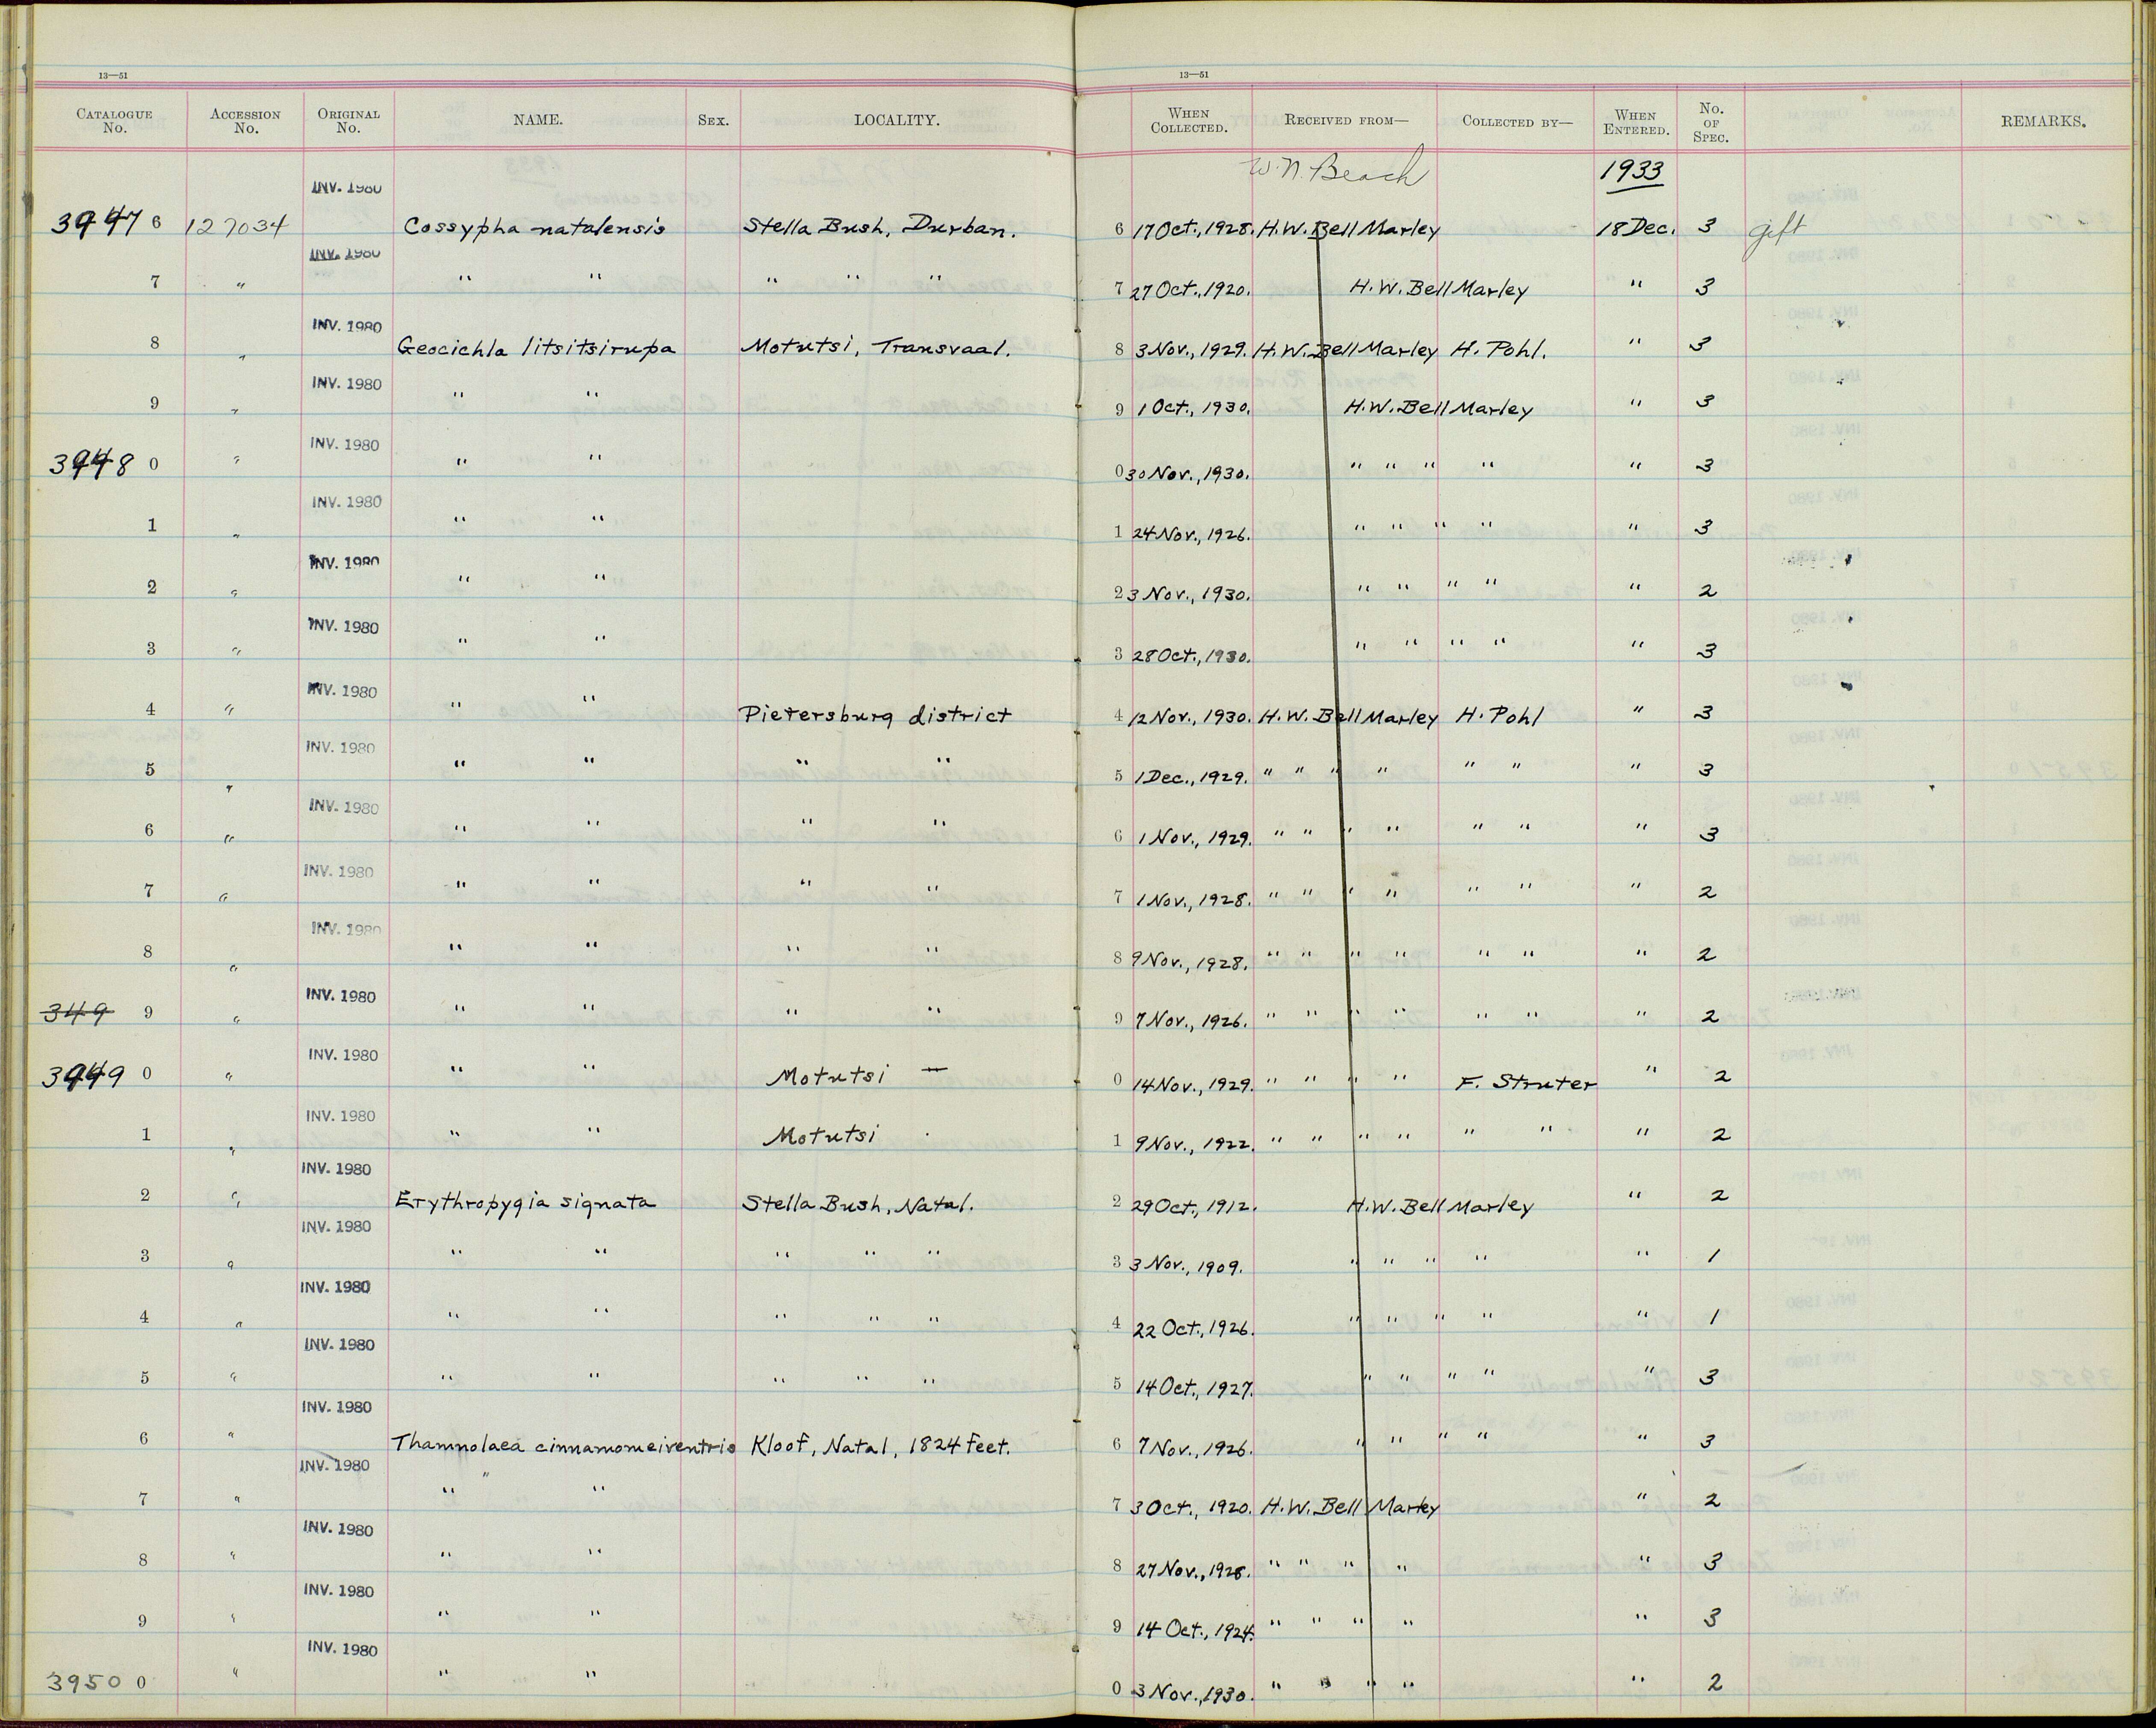 13—51
13—51
CATALOGUE No. ACCESSION No. ORIGINAL No. NAME. SEX. LOCALITY. WHEN COLLECTED. RECEIVED FROM— COLLECTED BY— WHEN ENTERED. No. OF SPEC. REMARKS.
W. N. Beach 1933
INV. 1980
3947 6 127034 Cossypha natalensis Stella Bush, Durban. 6 17 Oct., 1928. H. W. Bell Marley 18 Dec. 3 gift
INV. 1980
7 " " " " " " 7 27 Oct., 1920. H. W. Bell Marley " 3
INV. 1980
8 " Geocichla litsitsirupa Motutsi, Transvaal. 8 3 Nov., 1929. H. W. Bell Marley H. Pohl. " 3
INV. 1980
9 " " " 9 1 Oct., 1930. H. W. Bell Marley " 3
INV. 1980
3948 0 " " " 0 30 Nov., 1930. " " " " " 3
INV. 1980
1 " " " 1 24 Nov., 1926. " " " " " 3
INV. 1980
2 " " " 2 3 Nov., 1930. " " " " " 2
INV. 1980
3 " " " 3 28 Oct., 1930. " " " " " 3
INV. 1980
4 " " " Pietersburg district 4 12 Nov., 1930. H. W. Bell Marley H. Pohl " 3
INV. 1980
5 " " " " " 5 1 Dec., 1929. " " " " " " " 3
INV. 1980
6 " " " " " 6 1 Nov., 1929. " " " " " " " 3
INV. 1980
7 " " " " " 7 1 Nov., 1928. " " " " " " " 2
INV. 1980
8 " " " " " 8 9 Nov., 1928. " " " " " " " 2
INV. 1980
349 9 " " " " " 9 7 Nov., 1926. " " " " " " " 2
INV. 1980
3949 0 " " " Motutsi — 0 14 Nov., 1929. " " " " F. Struter " 2
INV. 1980
1 " " " Motutsi 1 9 Nov., 1922. " " " " " " " 2
INV. 1980
2 " Erythropygia signata Stella Bush, Natal. 2 29 Oct., 1912. H. W. Bell Marley " 2
INV. 1980
3 " " " " " " 3 3 Nov., 1909. " " " " " 1
INV. 1980
4 " " " " " " 4 22 Oct., 1926. " " " " " 1
INV. 1980
5 " " " " " " 5 14 Oct., 1927. " " " " " 3
INV. 1980
6 " Thamnolaea cinnamomeiventris Kloof, Natal, 1824 feet. 6 7 Nov., 1926. " " " " " 3
INV. 1980
7 " " " 7 3 Oct., 1920. H. W. Bell Marley " 2
INV. 1980
8 " " " 8 27 Nov., 1928. " " " " " 3
INV. 1980
9 " " " 9 14 Oct., 1924. " " " " " 3
INV. 1980
3950 0 " " " 0 3 Nov., 1930. " " " " " 2